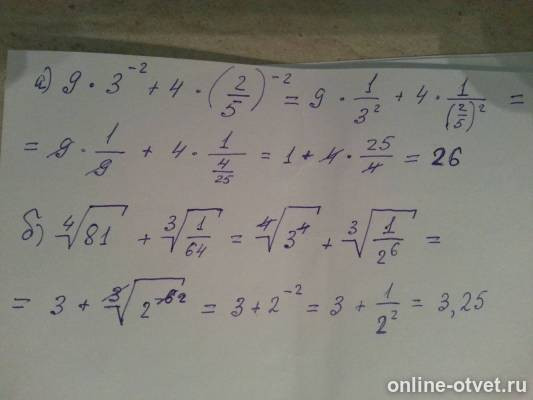 а) 9 · 3⁻² + 4 · (2/5)⁻² = 9 · 1/3² + 4 · 1/(2/5)² =
= 9 · 1/9 + 4 · 1/(4/25) = 1 + 4 · 25/4 = 26
б) ⁴√81 + ³√(1/64) = ⁴√(3⁴) + ³√(1/2⁶) =
= 3 + ³√(2⁻⁶²) = 3 + 2⁻² = 3 + 1/2² = 3,25
online-otvet.ru